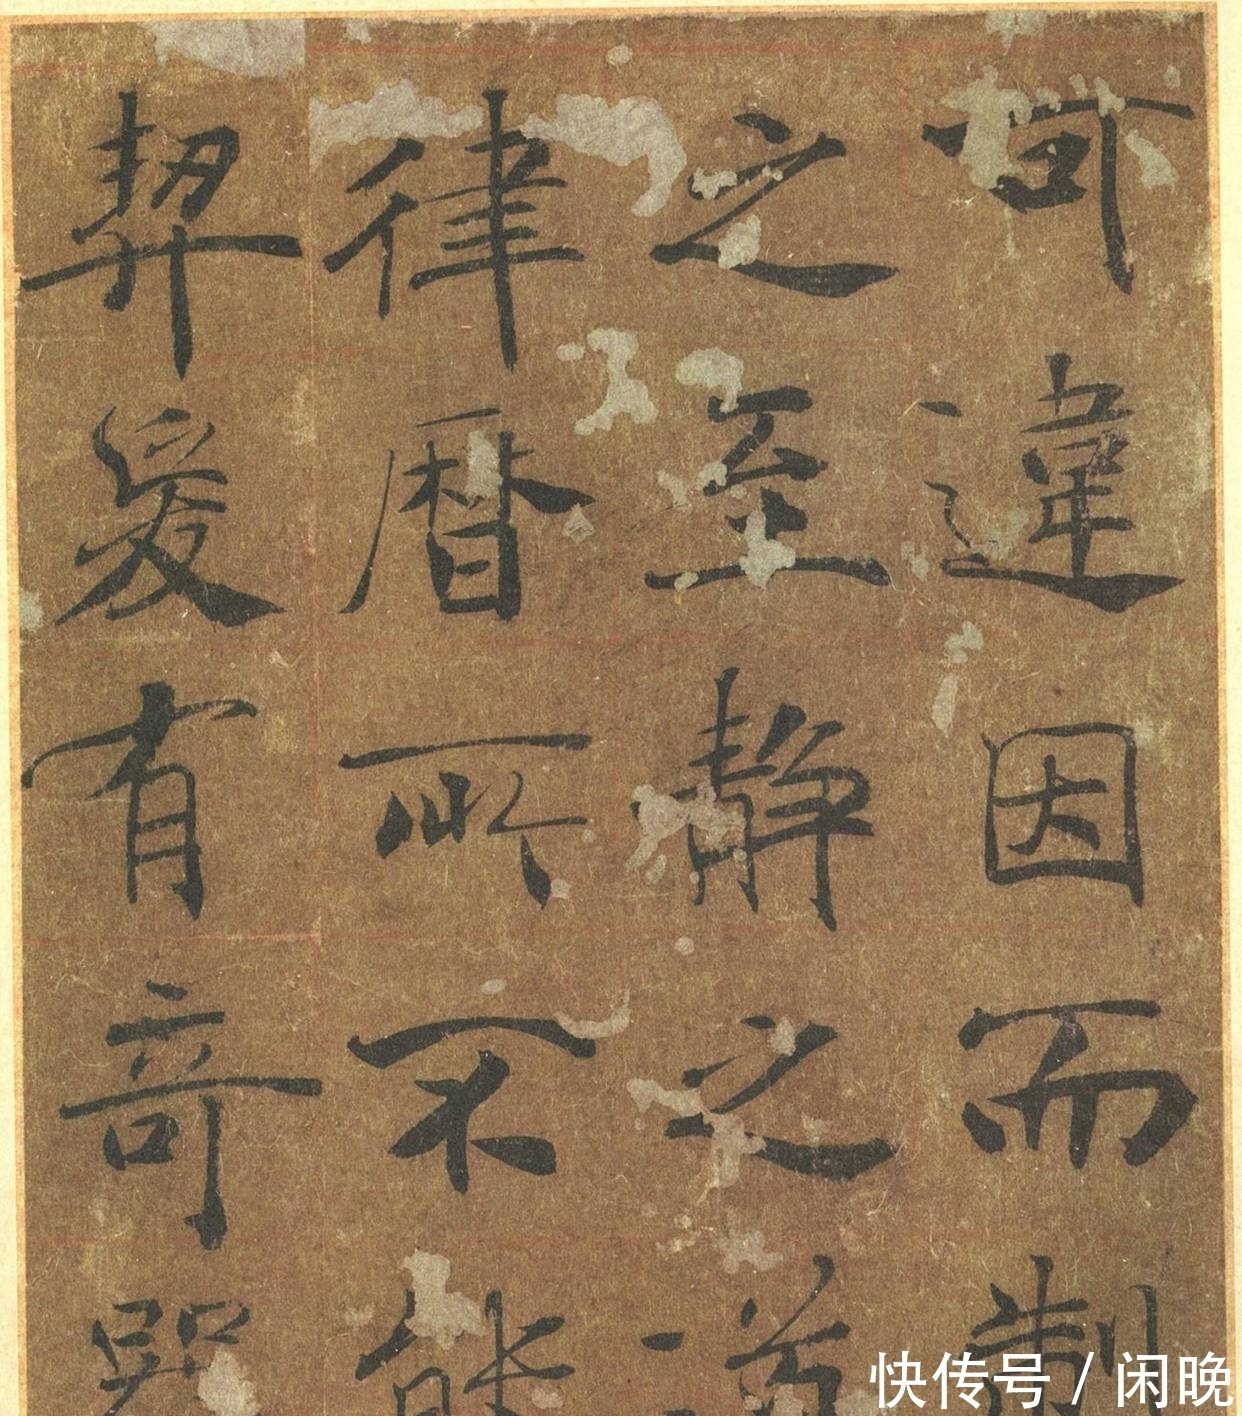 可違因而制
之至静之道
律曆所不能
契爰有奇器
快传号/闲晚